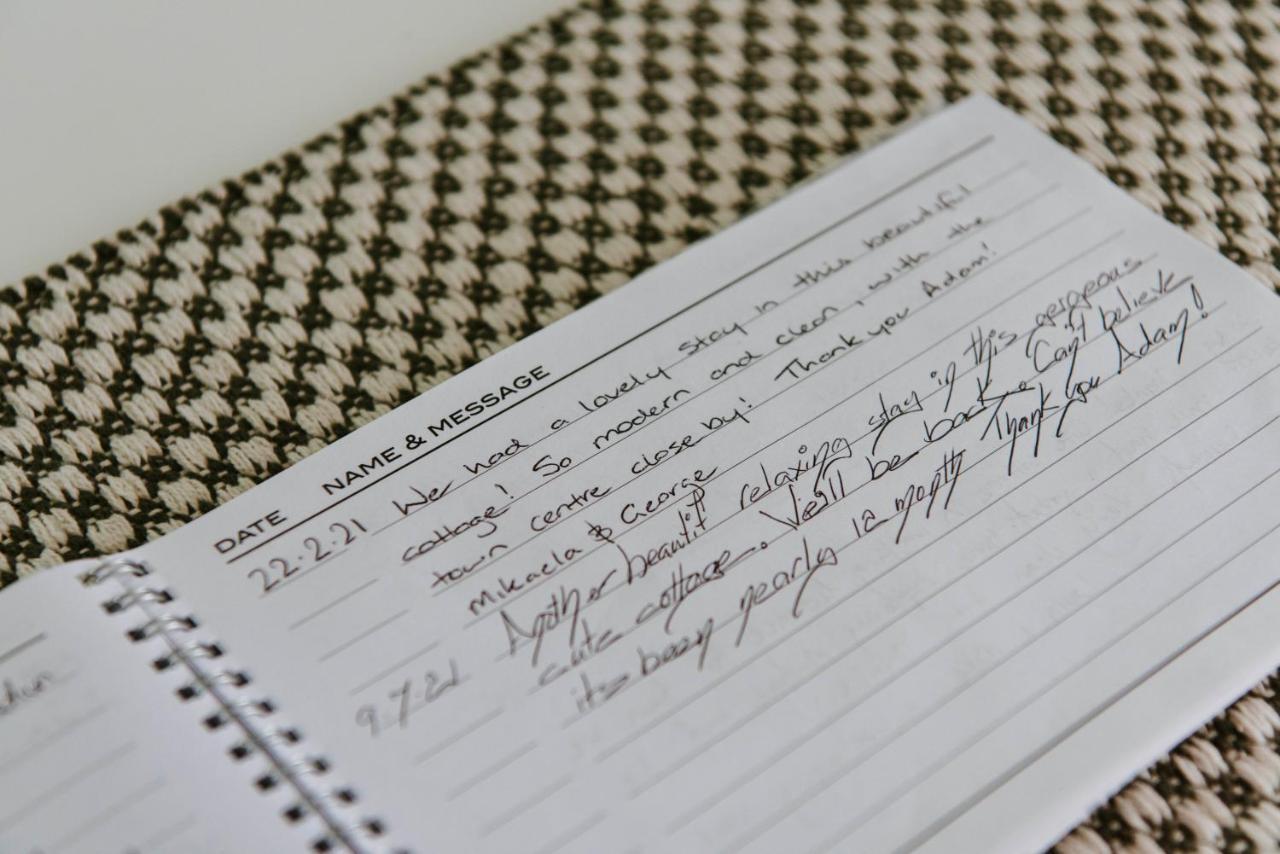 DATE NAME & MESSAGE
22.2.21 We had a lovely stay in this beautiful
cottage! So modern and clean, with the
town centre close by! Thank you Adam!
Mikaela & George
9.7.21 Another beautif relaxing stay in this gorgeous
cute cottage. We'll be back. Can't believe
it's been nearly 12 month Thank you Adam!